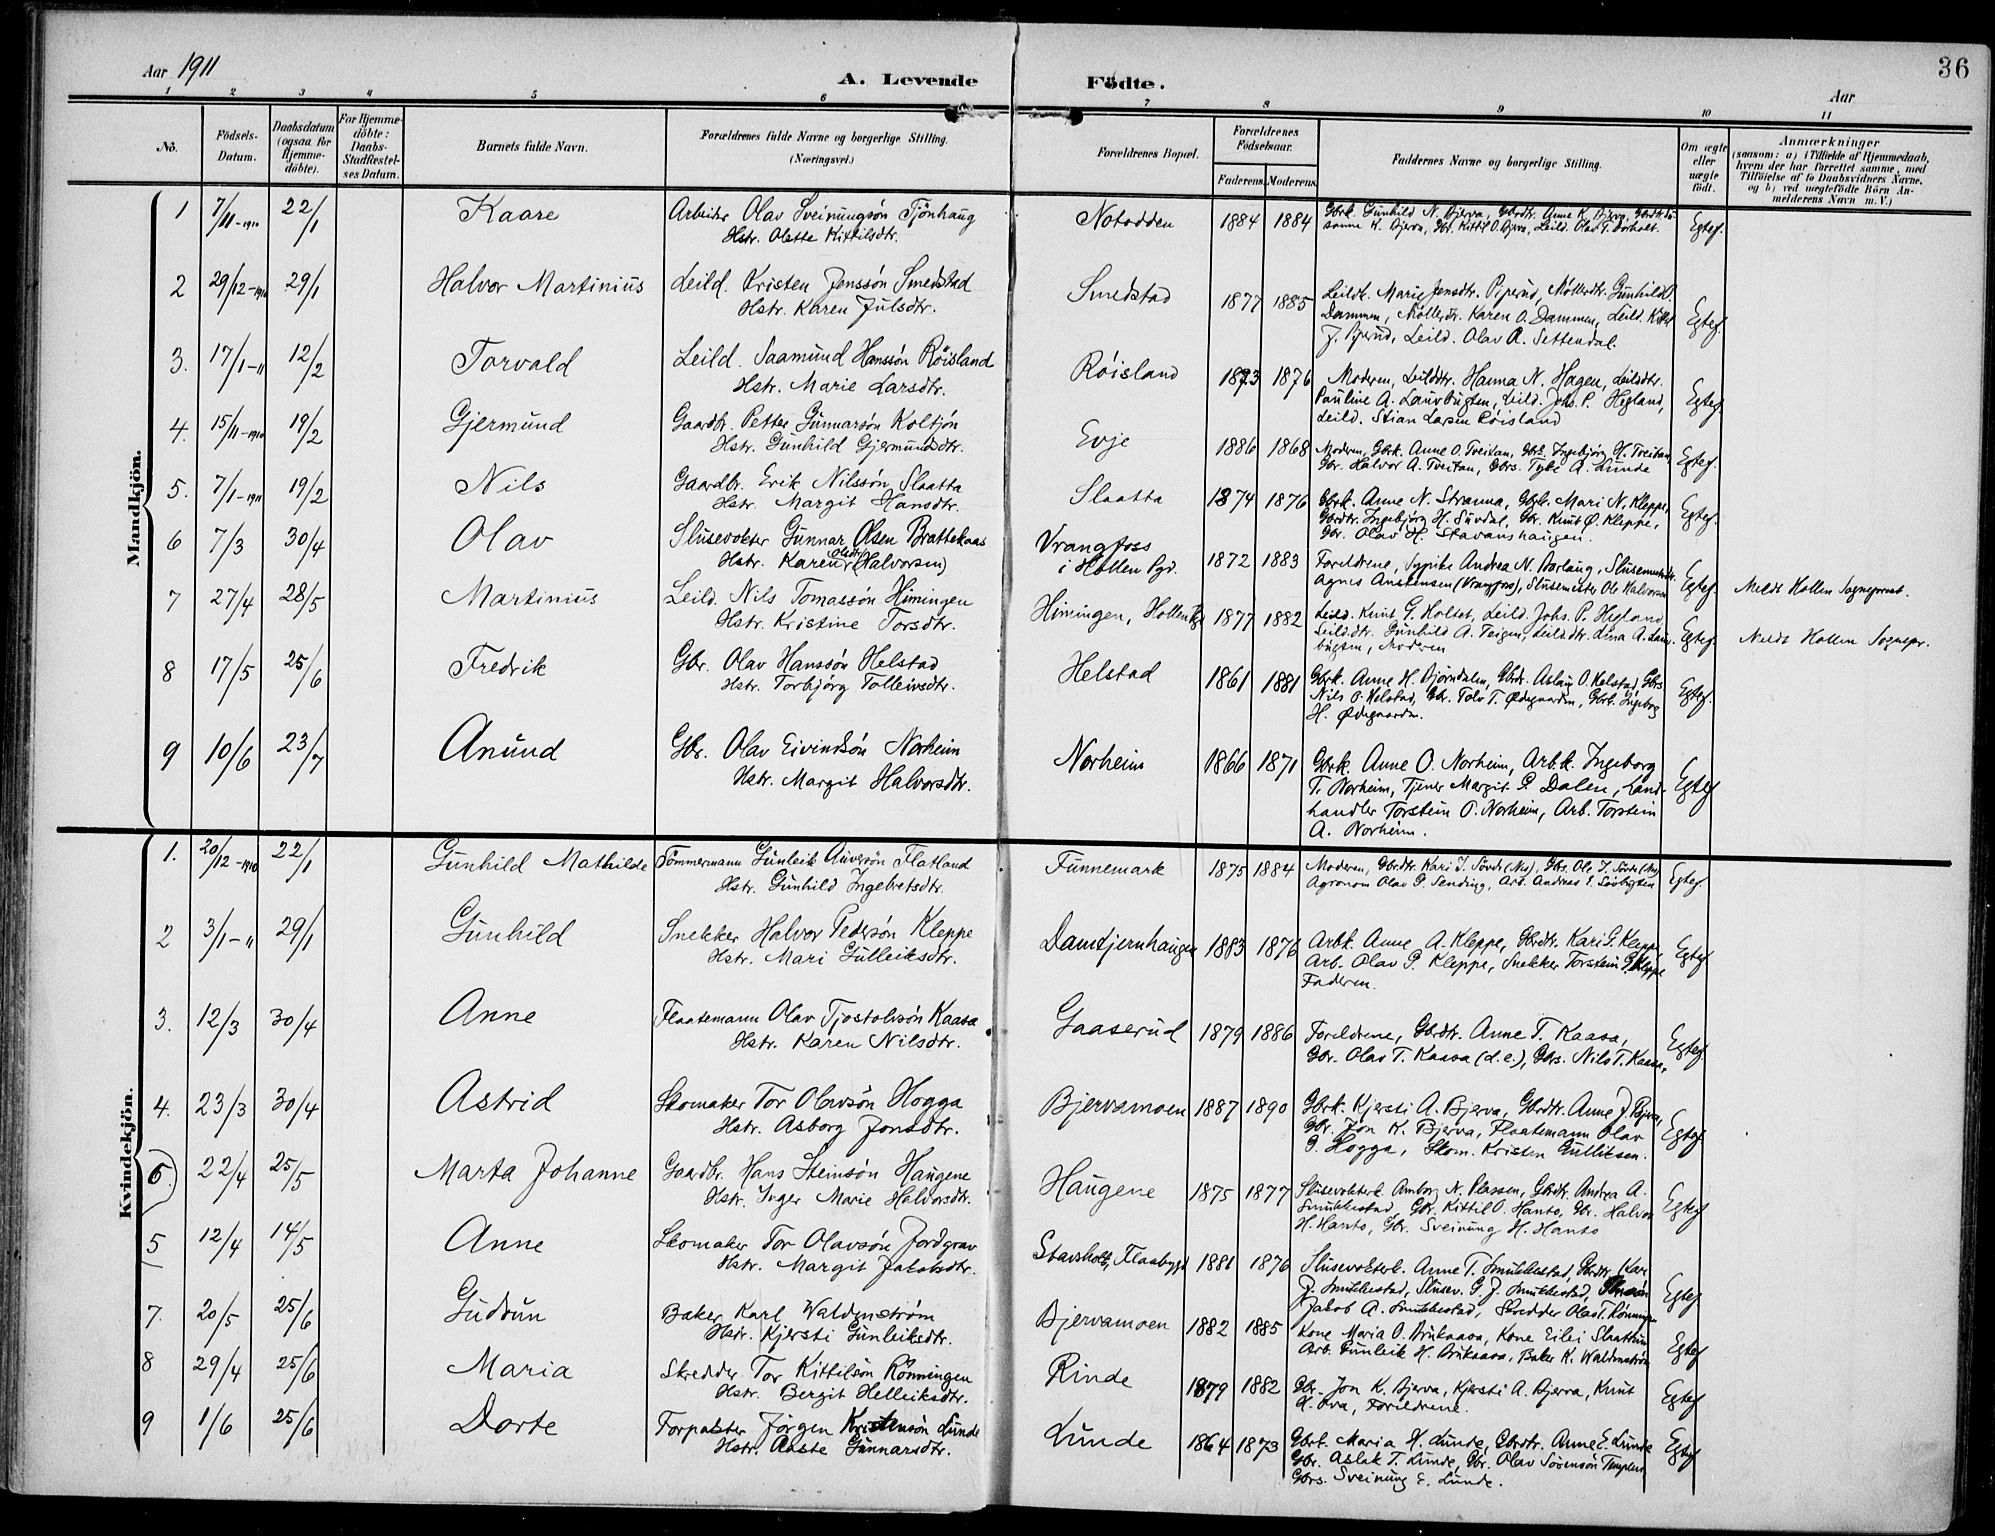 Aar 1911
A. Levende
Födte.
36
Aar
1 2 3 4 5 6 7 8 9 10 11
No.
Födsels-Datum.
Daabsdatum (ogsaa for Hjemme-döbte).
For Hjemme-döbte: Daabs-Stadfæstel-ses Datum.
Barnets fulde Navn.
Forældrenes fulde Navne og borgerlige Stilling. (Næringsvei.)
Forældrenes Bopæl.
Forældrenes Födselsaar.
Faderens. Moderens.
Faddernes Navne og borgerlige Stilling.
Om ægte eller uægte födt.
Anmærkninger
(saasom: a) i Tilfælde af Hjemmedaab, hvem der har forrettet samme, med Tilföielse af to Daabsvidners Navne, og b) ved uægtefödte Börn An-melderens Navn m. V.)
Mandkjön.
1 7/11-1910 22/1 Kaare Arbeider Olav Sveinungsøn Tjönhaug
Hstr. Olette Kittilsdtr.
Notodden 1884 1884 Gbrk. Gunhild N. Bjerva, Gbrdtr. Anne K. Bjerva,
sanne K. Bjerva, Gbr. Kittil O. Bjerva, Leild. Olav T. Egtef.
2 29/12-1910 29/1 Halvor Martinius Leild. Kristen Jenssøn Smedstad
Hstr. Karen Julsdtr.
Smedstad 1877 1885 Leildk. Marie Jensdtr. Piperud, Møllerdtr. Gunhild O.
Dammen, Møllerdtr. Karen O. Dammen, Leild. Kittil
J. Bjerud, Leild. Olav A. Settendal. Egtef.
3. 17/1-11 12/2 Torvald Leild. Saamund Hanssøn Røisland
Hstr. Marie Larsdtr.
Røisland 1873 1876 Moderen, Leilddtr. Hanna N. Hagen, Leildtr.
Pauline A. Laurbugten, Leild. Johs. P. Hegland,
Leild. Stian Larsen Røisland Egtef.
4. 15/11-1910 19/2 Gjermund Gaardbr. Petter Gunnarsøn Koltjön
Hstr. Gunhild Gjermundsdtr.
Evje 1886 1868 Moderen, Gbrk. Anne O. Tveitan, Gbrs. Ingebjørg H. Tveitan,
Gbr. Halvor A. Tveitan, Gbrs. A. Lunde Egtef.
5. 7/1-1911 19/2 Nils Gaardbr. Erik Nilssøn Slaatta
Hstr. Margit Hansdtr.
Slaatta 1874 1876 Gbrk. Anne N. Stranna, Gbrk. Mari N. Kleppe,
Gbrdtr. Ingebjørg H. Suvdal, Gbr. Knut Ø. Kleppe,
Gbr. Olav H. Stavanshaugen. Egtef.
6 7/3 30/4 Olav Slusevokter Gunnar Olsen Brattekaas
Hstr. Karen Olsdtr. (Halvorsen)
Vrangfoss
i Hollen Pgd. 1872 1883 Foreldrene, Sypike Andrea N. Aarlaug, Slusemesterdtr.
Agnes Anstensen (Vrangfoss), Slusemester Ole Halvorsen Egtef. Meldt Hollen Sogneprest.
7 27/4 28/5 Martinius Leild. Nils Tomassøn Himingen
Hstr. Kristine Torsdtr.
Himingen, Hollen Pgd 1877 1882 Leild. Knut G. Holtet, Leild. Johs. P. Hegland
Leild.dtr. Gunhild A. Teigen, Leild.dtr. Lina A. Laur-
bugten, Moderen Egtef. Meldt Hollen Sognepr.
8 17/5 25/6 Fredrik Gbr. Olav Hanssøn Helstad
Hstr. Torbjørg Tolleivsdtr.
Helstad 1861 1881 Gbrk. Anne H. Bjørndalen, Gbrdr. Aslaug O. Helstad, Gbrs
Nils O. Helstad, Gbr. Tolv T. Ødegaarden, Gbrk. Ingeborg
H. Ødegaarden. Egtef.
9 10/6 23/7 Anund Gbr. Olav Eivindsøn Norheim
Hstr. Margit Halvorsdtr.
Norheim 1866 1871 Gbrk. Anne O. Norheim, Arb.k. Ingeborg
T. Norheim, Tjener Margit P. Dalen, Land-
handler Torstein O. Norheim, Arb. Torstein
A. Norheim. Egtef
Kvindekjön.
1. 20/12-1910 22/1 Gunhild Mathilde Tömmermann Gunleik Auversøn Flatland
Hstr. Gunhild Ingebretsdtr.
Funnemark 1875 1884 Moderen, Gbrdtr. Kari J. , Gbrs. Ole J.
Agronom Olav P. Sending, Arb. Andreas Egtef.
2 3/1-11 29/1 Gunhild Snekker Halvor Pedersøn Kleppe
Hstr. Mari Gulleiksdtr.
Damtjernhaugen 1883 1876 Arbk. Anne A. Kleppe, Gbrdtr. Kari G. Kleppe,
Arb. Olav P. Kleppe, Snekker Torstein P. Kleppe
Faderen. Egtef
3. 12/3 30/4 Anne Flaatemann Olav Tjostolvsøn Kaasa
Hstr. Karen Nilsdtr.
Gaaserud 1879 1886 Foreldrene, Gbrdtr. Anne T. Kaasa,
Gbr. Olav T. Kaasa (d.e.), Gbrs. Nils T. Kaasa, Egtef.
4. 23/3 30/4 Astrid Skomaker Tor Olavsøn Hogga
Hstr. Asborg Jonsdtr.
Bjervamoen 1887 1890 Gbrk. Kjersti A. Bjerva, Gbrdtr. Anne J. Bjerva,
Gbr. Jon K. Bjerva, Flaatemann Olav
P. Hogga, Skom. Kristen Gulliksen. Egtef.
6. 22/4 25/5 Marta Johanne Gaardbr. Hans Steinsøn Haugene
Hstr. Inger Marie Halvorsdtr.
Haugene 1875 1877 Slusevokterk. Amborg N. Plassen, Gbrdtr. Andrea A.
Smukkestad, Gbr. Kittil O. Hanto, Gbr. Halvor
H. Hanto, Gbr. Sveinung H. Hanto Egtef
5 12/4 14/5 Anne Skomaker Tor Olavsøn Jordgrav
Hstr. Margit Jakobsdtr.
Stavsholt, Flaabygd 1881 1876 Slusevokterk. Anne T. Smukkestad, Gbrdtr. Kari
J. Smukkestad, Slusev. G. J. Smukkestad,
Jakob A. Smukkestad, Skredder Olav T. Rönningen Egtef
7. 20/5 25/6 Gudrun Baker Karl Waldenström
Hstr. Kjersti Gunleiksdtr.
Bjervamoen 1882 1885 Kone Maria O. Brukaasa, Kone Eilei Slaattun
Arb. Gunleik H. Brukaasa, Baker K. Waldenström Egtef
8 29/4 25/6 Maria Skredder Tor Kittilsøn Rönningen
Hstr. Bergit Helleiksdtr.
Rinde 1879 1882 Gbr. Jon K. Bjerva, Kjersti A. Bjerva, Knut
Foreldrene. Egtef
9 1/6 25/6 Dorte Forpakter Jørgen Kristensøn Lunde
Hstr. Aaste Gunnarsdtr.
Lunde 1864 1873 Gbrk. Maria H. Lunde, Gbrdtr. Anne E. Lunde
Gbr. Aslak T. Lunde, Gbr. Olav Sørensøn Templen
Gbrs. Sveinung E. Lunde. Egtef